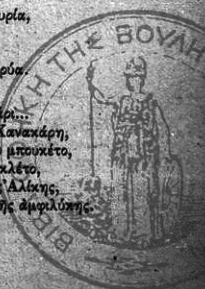 υρία,
ρύα.
ρι...
Κανακάρη,
μπουκέτο,
κλέτο,
Ἀλίκης,
τῆς ἀμφιλύκης.
ΚΗ ΤΗΣ ΒΟΥΛΗ
ΒΙΒ